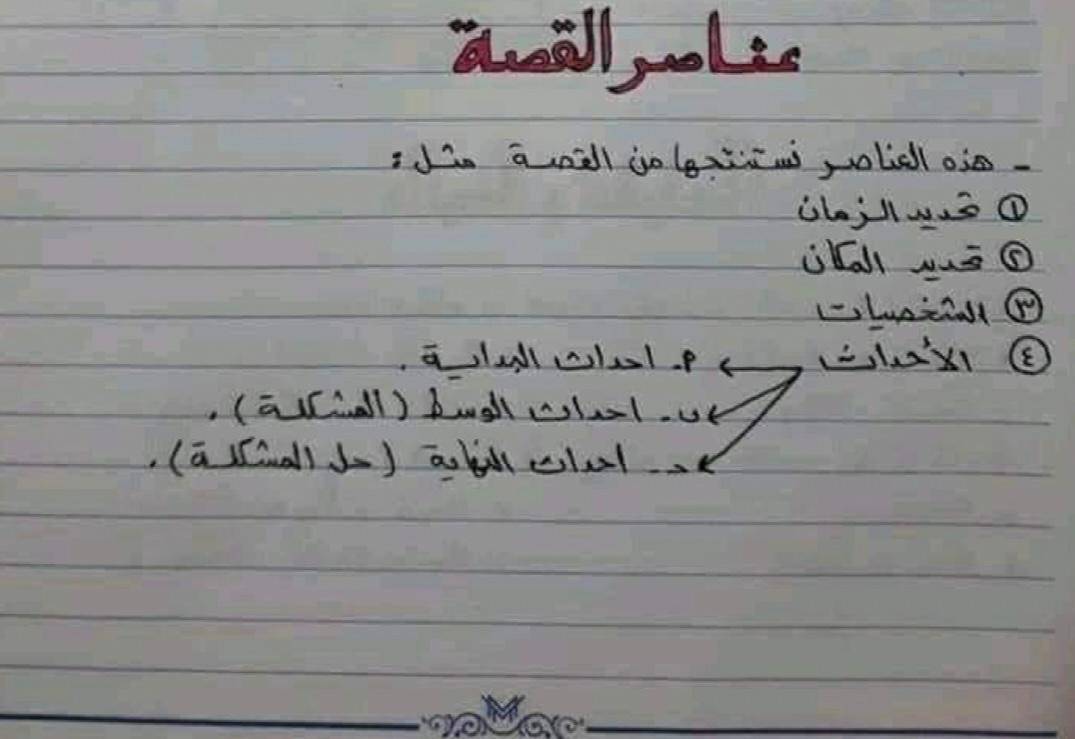 عناصر القصة
- هذه العناصر نستنتجها من القصة مثل :
١ تحديد الزمان
٢ تحديد المكان
٣ الشخصيات
٤ الأحداث ← أ. احداث البداية .
ب. احداث الوسط (المشكلة) .
ج. احداث النهاية (حل المشكلة) .